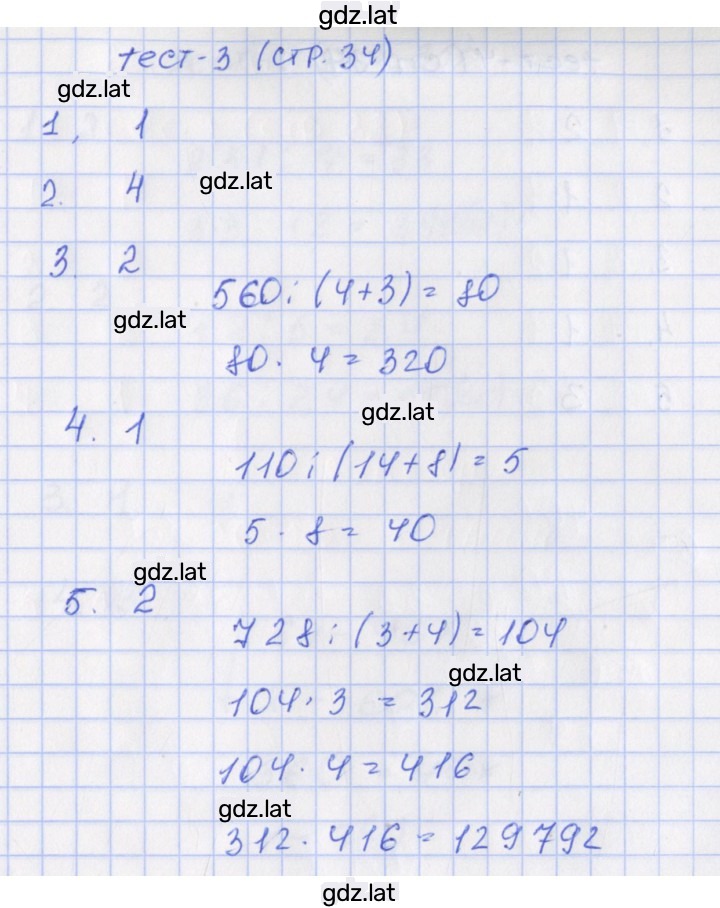 gdz.lat
тест-3 (стр. 34)
gdz.lat
1, 1
2. 4
gdz.lat
3. 2
560 : (4+3) = 80
gdz.lat
80 · 4 = 320
gdz.lat
4. 1
110 : (14+8) = 5
5 · 8 = 40
gdz.lat
5. 2
728 : (3+4) = 104
gdz.lat
104 · 3 = 312
104 · 4 = 416
gdz.lat
312 · 416 = 129792
gdz.lat